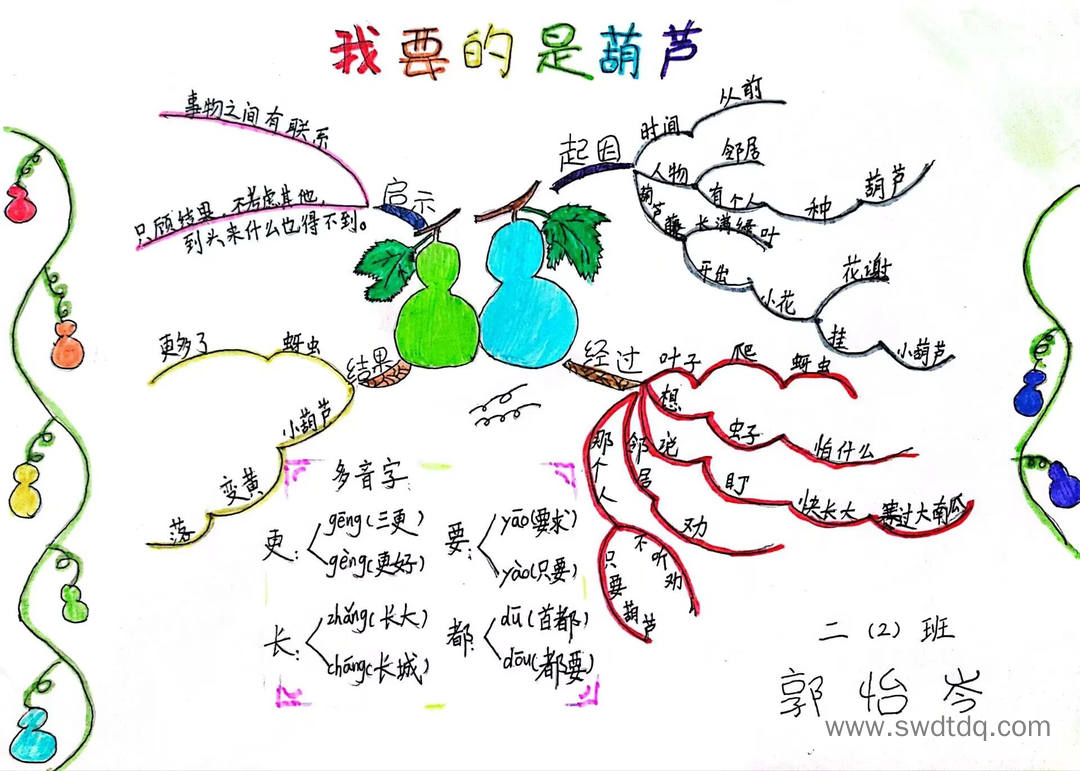 我要的是葫芦
启示
事物之间有联系
只顾结果，不考虑其他，
到头来什么也得不到。
起因
时间
从前
人物
邻居
有个人
种
葫芦
葫芦藤
长满绿叶
开出
小花
花谢
挂
小葫芦
经过
叶子
爬
蚜虫
想
虫子
怕什么
说
盯
快长大
赛过大南瓜
邻居
劝
那个人
不听劝
只要葫芦
结果
蚜虫
更多了
小葫芦
变黄
落
多音字:
更:
gēng(三更)
gèng(更好)
要:
yāo(要求)
yào(只要)
长:
zhǎng(长大)
cháng(长城)
都:
dū(首都)
dōu(都要)
二（2）班
郭怡岑
www.swdtdq.com